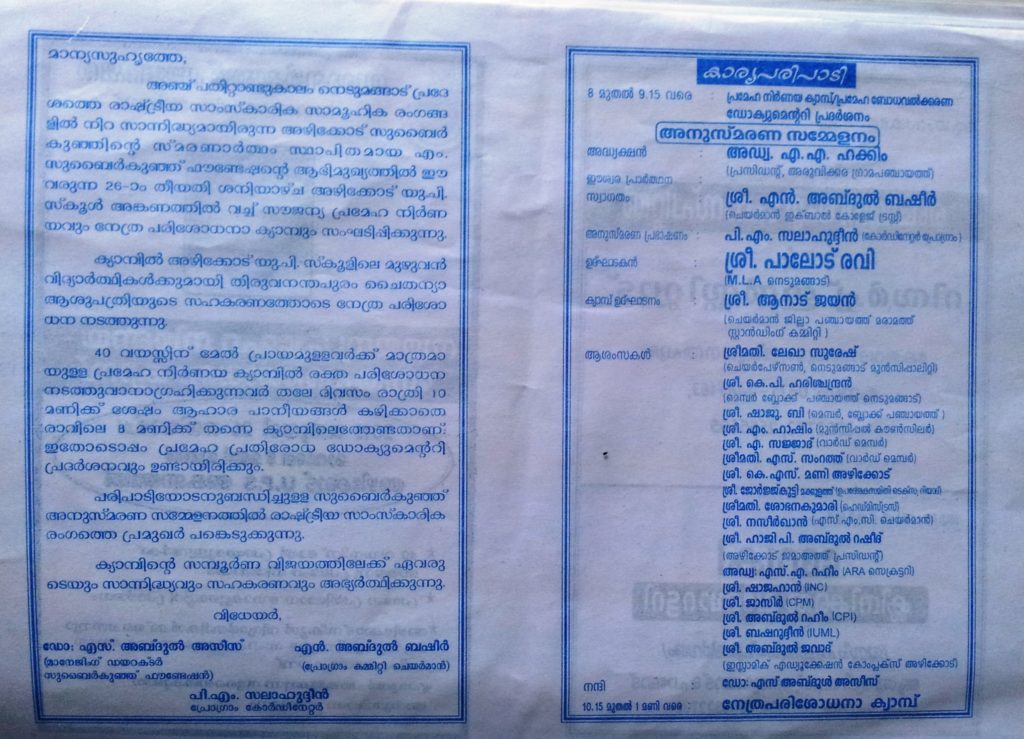 മാന്യസുഹൃത്തേ,
അഞ്ച് പതിറ്റാണ്ടുകാലം നെടുമങ്ങാട് പ്രദേ
ശത്തെ രാഷ്ട്രീയ സാംസ്കാരിക സാമൂഹിക രംഗങ്ങ
ളിൽ നിറ സാന്നിദ്ധ്യമായിരുന്ന അഴിക്കോട് സുബൈർ
കുഞ്ഞിന്റെ സ്മരണാർത്ഥം സ്ഥാപിതമായ എം.
സുബൈർകുഞ്ഞ് ഫൗണ്ടേഷന്റെ ആഭിമുഖ്യത്തിൽ ഈ
വരുന്ന 26-ാം തീയതി ശനിയാഴ്ച അഴിക്കോട് യു.പി.
സ്കൂൾ അങ്കണത്തിൽ വച്ച് സൗജന്യ പ്രമേഹ നിർണ
യവും നേത്ര പരിശോധനാ ക്യാമ്പും സംഘടിപ്പിക്കുന്നു.
ക്യാമ്പിൽ അഴിക്കോട് യു.പി. സ്കൂളിലെ മുഴുവൻ
വിദ്യാർത്ഥികൾക്കുമായി തിരുവനന്തപുരം ചൈതന്യാ
ആശുപത്രിയുടെ സഹകരണത്തോടെ നേത്ര പരിശോ
ധന നടത്തുന്നു.
40 വയസ്സിന് മേൽ പ്രായമുള്ളവർക്ക് മാത്രമാ
യുള്ള പ്രമേഹ നിർണയ ക്യാമ്പിൽ രക്ത പരിശോധന
നടത്തുവാനാഗ്രഹിക്കുന്നവർ തലേ ദിവസം രാത്രി 10
മണിക്ക് ശേഷം ആഹാര പാനീയങ്ങൾ കഴിക്കാതെ
രാവിലെ 8 മണിക്ക് തന്നെ ക്യാമ്പിലെത്തേണ്ടതാണ്.
ഇതോടൊപ്പം പ്രമേഹ പ്രതിരോധ ഡോക്യുമെന്ററി
പ്രദർശനവും ഉണ്ടായിരിക്കും.
പരിപാടിയോടനുബന്ധിച്ചുള്ള സുബൈർകുഞ്ഞ്
അനുസ്മരണ സമ്മേളനത്തിൽ രാഷ്ട്രീയ സാംസ്കാരിക
രംഗത്തെ പ്രമുഖർ പങ്കെടുക്കുന്നു.
ക്യാമ്പിന്റെ സമ്പൂർണ വിജയത്തിലേക്ക് ഏവരു
ടെയും സാന്നിദ്ധ്യവും സഹകരണവും അഭ്യർത്ഥിക്കുന്നു.
വിധേയർ,
ഡോ: എസ്. അബ്ദുൽ അസീസ് എൻ. അബ്ദുൽ ബഷീർ
(മാനേജിംഗ് ഡയറക്ടർ (പ്രോഗ്രാം കമ്മിറ്റി ചെയർമാൻ)
സുബൈർകുഞ്ഞ് ഫൗണ്ടേഷൻ)
പി.എം. സലാഹുദ്ദീൻ
പ്രോഗ്രാം കോർഡിനേറ്റർ
കാര്യപരിപാടി
8 മുതൽ 9.15 വരെ : പ്രമേഹ നിർണയ ക്യാമ്പ്/പ്രമേഹ ബോധവൽക്കരണ
ഡോക്യുമെന്ററി പ്രദർശനം
അനുസ്മരണ സമ്മേളനം
അദ്ധ്യക്ഷൻ : അഡ്വ. എ.എ. ഹക്കിം
(പ്രസിഡന്റ്, അരുവിക്കര ഗ്രാമപഞ്ചായത്ത്)
ഈശ്വര പ്രാർത്ഥന :
സ്വാഗതം : ശ്രീ. എൻ. അബ്ദുൽ ബഷീർ
(ചെയർമാൻ ഇക്ബാൽ കോളേജ് ട്രസ്റ്റ്)
അനുസ്മരണ പ്രഭാഷണം : പി.എം. സലാഹുദ്ദീൻ (കോർഡിനേറ്റർ പ്രോഗ്രാം)
ഉദ്ഘാടകൻ : ശ്രീ. പാലോട് രവി
(M.L.A നെടുമങ്ങാട്)
ക്യാമ്പ് ഉദ്ഘാടനം : ശ്രീ. ആനാട് ജയൻ
(ചെയർമാൻ ജില്ലാ പഞ്ചായത്ത് മരാമത്ത്
സ്റ്റാൻഡിംഗ് കമ്മിറ്റി)
ആശംസകൾ : ശ്രീമതി. ലേഖാ സുരേഷ്
(ചെയർപേഴ്സൺ, നെടുമങ്ങാട് മുൻസിപ്പാലിറ്റി)
ശ്രീ. കെ.പി. ഹരിശ്ചന്ദ്രൻ
(മെമ്പർ ബ്ലോക്ക് പഞ്ചായത്ത് നെടുമങ്ങാട്)
ശ്രീ. ഷാജു. ബി (മെമ്പർ, ബ്ലോക്ക് പഞ്ചായത്ത്)
ശ്രീ. എം. ഹാഷിം (മുൻസിപ്പൽ കൗൺസിലർ)
ശ്രീ. എ. സജ്ജാദ് (വാർഡ് മെമ്പർ)
ശ്രീമതി. എസ്. സംറത്ത് (വാർഡ് മെമ്പർ)
ശ്രീ. കെ.എസ്. മണി അഴിക്കോട്
ശ്രീ. ജോർജ്ജ്കുട്ടി
ശ്രീമതി. ശോഭനകുമാരി (ഹെഡ്മിസ്ട്രസ്)
ശ്രീ. നസീർഖാൻ (എസ്.എം.സി. ചെയർമാൻ)
ശ്രീ. ഹാജി പി. അബ്ദുൽ റഷീദ്
(അഴിക്കോട് ജമാഅത്ത് പ്രസിഡന്റ്)
അഡ്വ: എസ്.എ. റഹീം (ARA സെക്രട്ടറി)
ശ്രീ. ഷാജഹാൻ (INC)
ശ്രീ. ജാസിർ (CPM)
ശ്രീ. അബ്ദുൽ റഹീം (CPI)
ശ്രീ. ബഷറുദ്ദീൻ (IUML)
ശ്രീ. അബ്ദുൽ ജവാദ്
(ഇസ്ലാമിക് എഡ്യൂക്കേഷൻ കോംപ്ലക്സ് അഴിക്കോട്)
നന്ദി : ഡോ: എസ് അബ്ദുൾ അസീസ്
10.15 മുതൽ 1 മണി വരെ : നേത്രപരിശോധനാ ക്യാമ്പ്